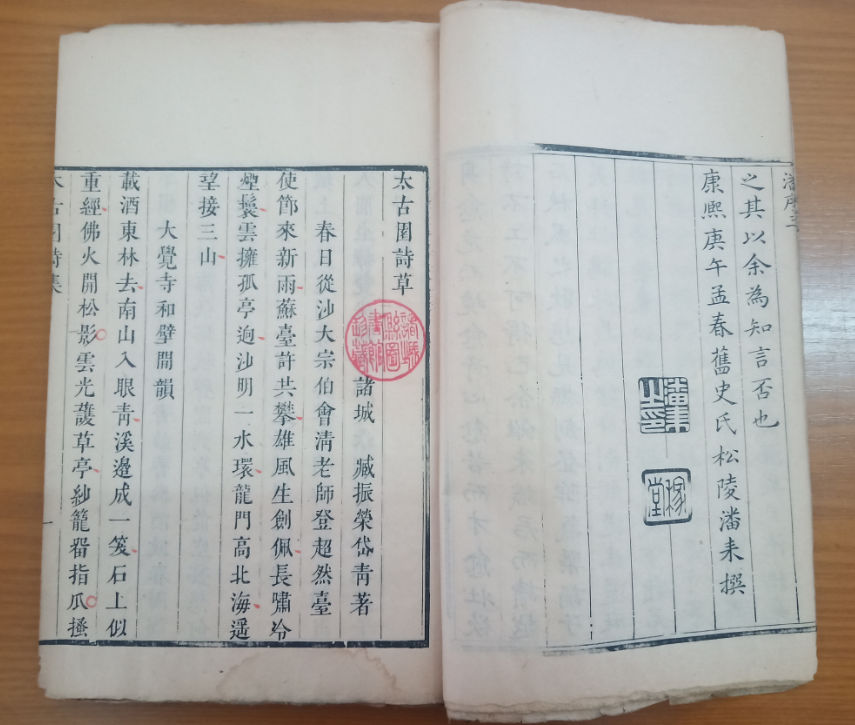 之其以余為知言否也
康熙庚午孟春舊史氏松陵潘耒撰
太古園詩草
諸城 臧振榮岱青著
春日從沙大宗伯會清老師登超然臺
使節來新雨蘇臺許共攀雄風生劍佩長嘯冷
煙鬟雲擁孤亭逈沙明一水環龍門高北海遥
望接三山
大覺寺和壁間韻
載酒東林去南山入眼青溪邊成一笑石上似
重經佛火開松影雲光護草亭紗籠留指爪搔
太古園詩集
一